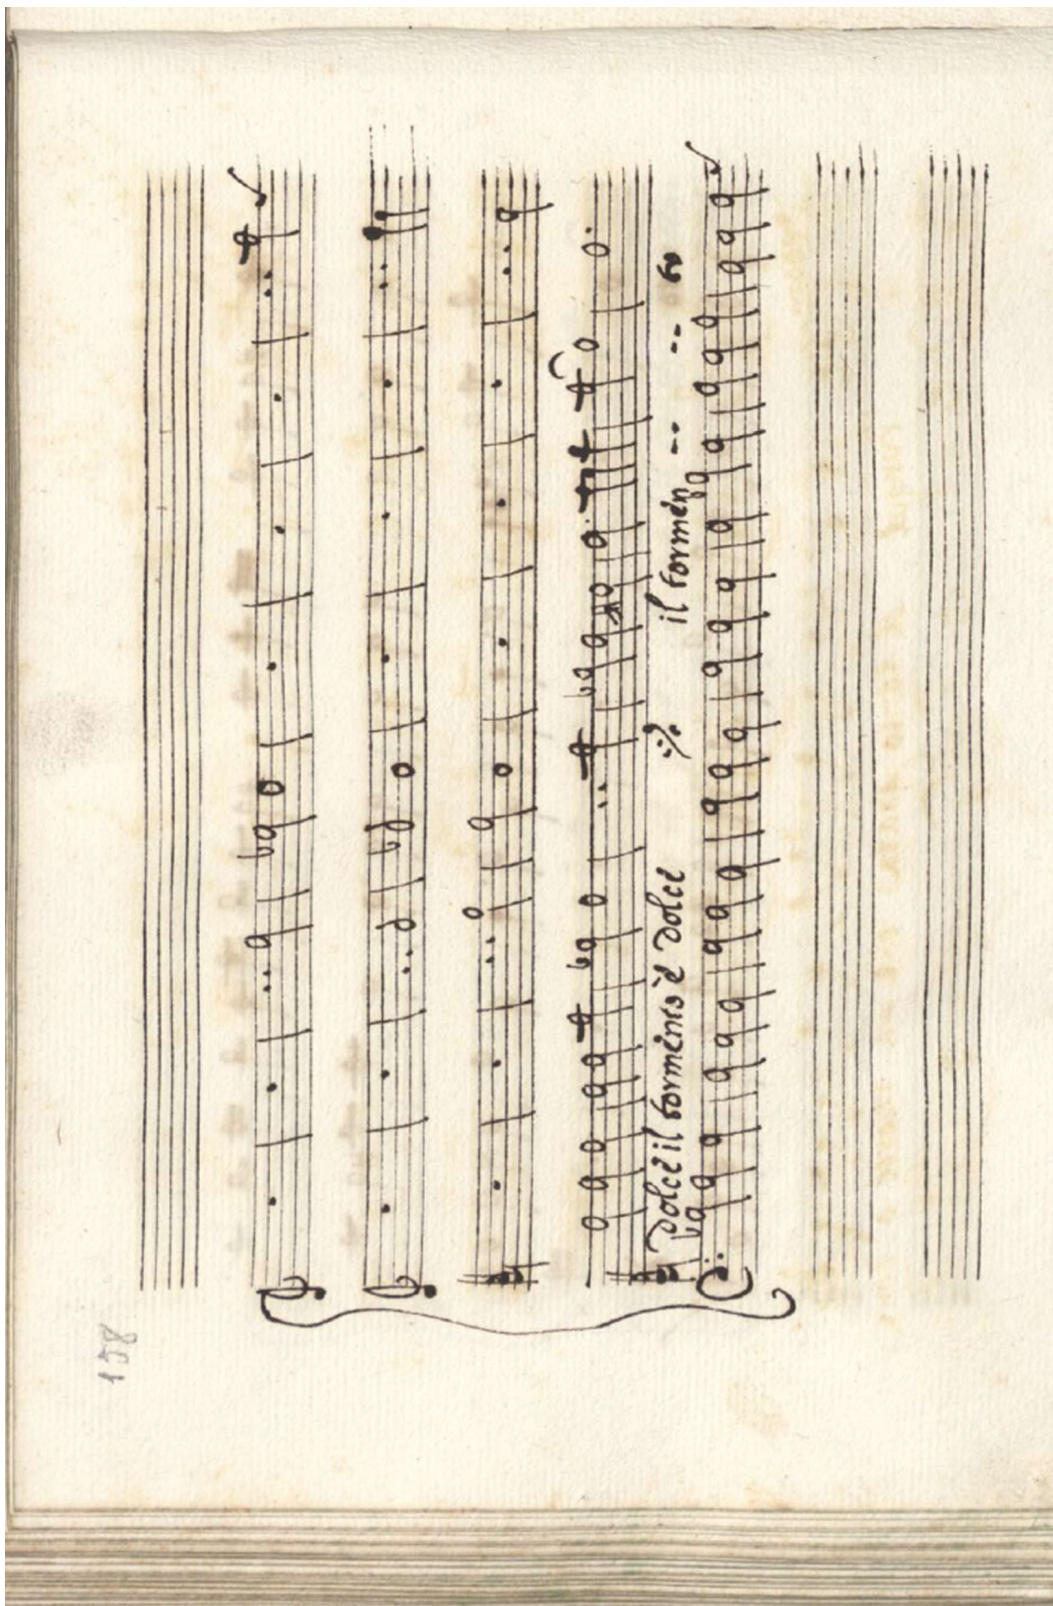 158
Dolce il tormento è dolce il tormén -- -- to